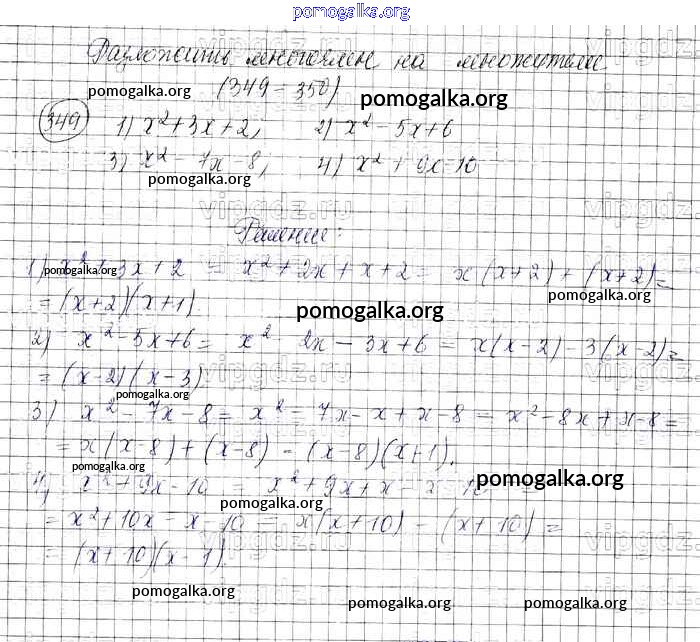 pomogalka.org
Разложить многочлен на множители
(349 - 350)
pomogalka.org
349 1) x² + 3x + 2, 2) x² - 5x + 6
pomogalka.org
3) x² - 7x - 8, 4) x² + 9x - 10
pomogalka.org
vipgdz.ru
Решение:
1) x² + 3x + 2 = x² + 2x + x + 2 = x(x+2) + (x+2) =
pomogalka.org pomogalka.org
= (x+2)(x+1)
pomogalka.org
2) x² - 5x + 6 = x² 2x - 3x + 6 = x(x-2) - 3(x-2) =
= (x-2)(x-3)
pomogalka.org
3) x² - 7x - 8 = x² - 7x - x + x - 8 = x² - 8x + x - 8 =
= x(x-8) + (x-8) - (x-8)(x+1).
pomogalka.org
4) x² + 9x - 10 = x² + 9x + x - x 10 =
pomogalka.org
pomogalka.org
= x² + 10x - x 10 = x(x+10) - (x+10) =
= (x+10)(x-1)
pomogalka.org
pomogalka.org pomogalka.org